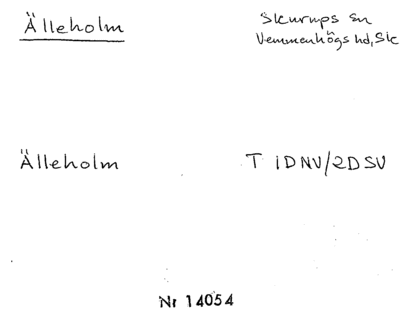 Älleholm
Skurups sn
Vemmenhögs hd, Sk
Älleholm
T 1DNV/2DSV
Nr 14054